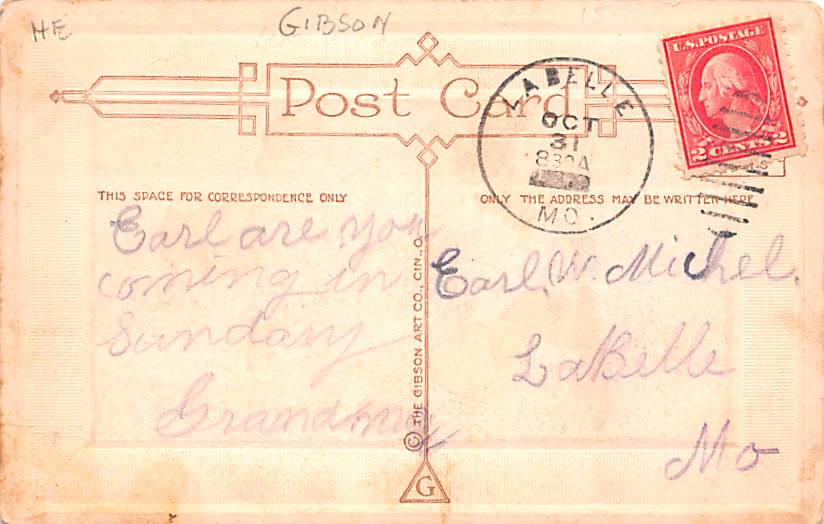 HE
GIBSON
Post Card
U.S. POSTAGE
2 CENTS 2
LABELLE
OCT
31
830A
MO.
THIS SPACE FOR CORRESPONDENCE ONLY
ONLY THE ADDRESS MAY BE WRITTEN HERE
Earl are you
coming in
Sunday
Grandma
© THE GIBSON ART CO., CIN., O.
G
Earl. W. Michel.
LaBelle
Mo